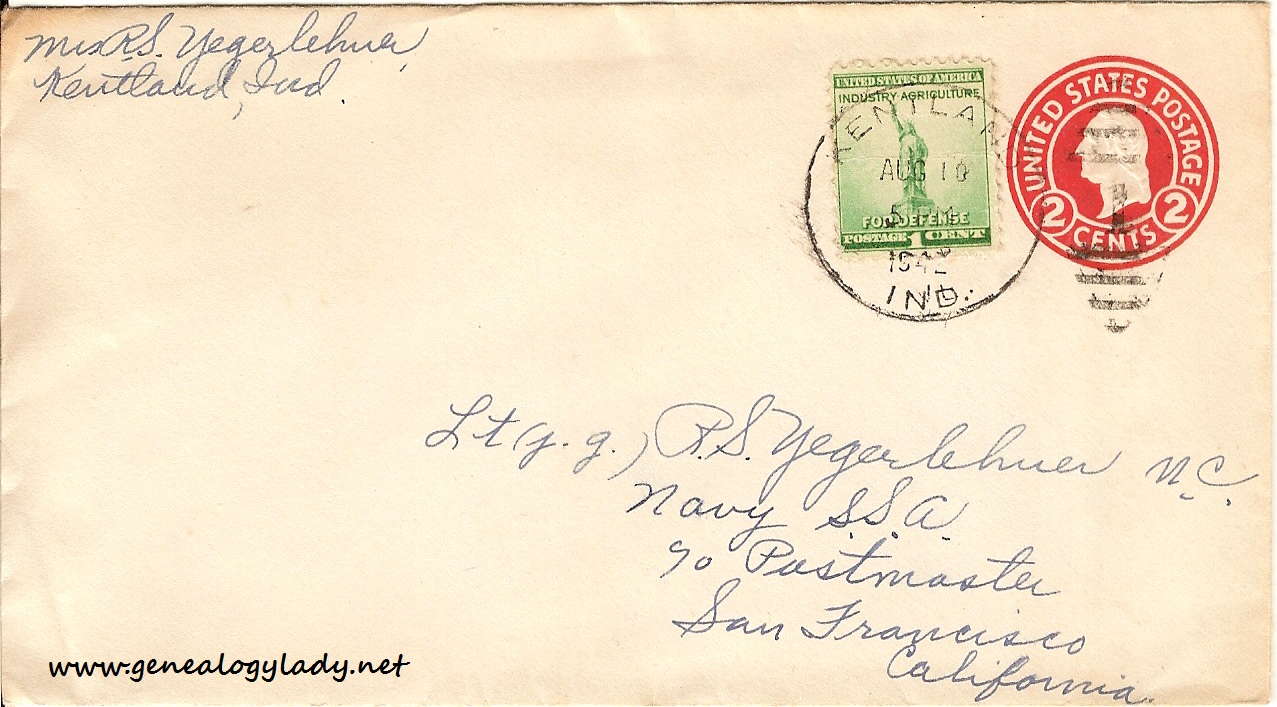 Mrs R.S. Yegerlehner,
Kentland, Ind.
UNITED STATES OF AMERICA
INDUSTRY AGRICULTURE
FOR DEFENSE
POSTAGE 1 CENT
KENTLAND
AUG 10
5 PM
1942
IND.
UNITED STATES POSTAGE
2 CENTS 2
Lt (j.g.) R.S. Yegerlehner N.C.
Navy S.S.A.
c/o Postmaster
San Francisco
California.
www.genealogylady.net